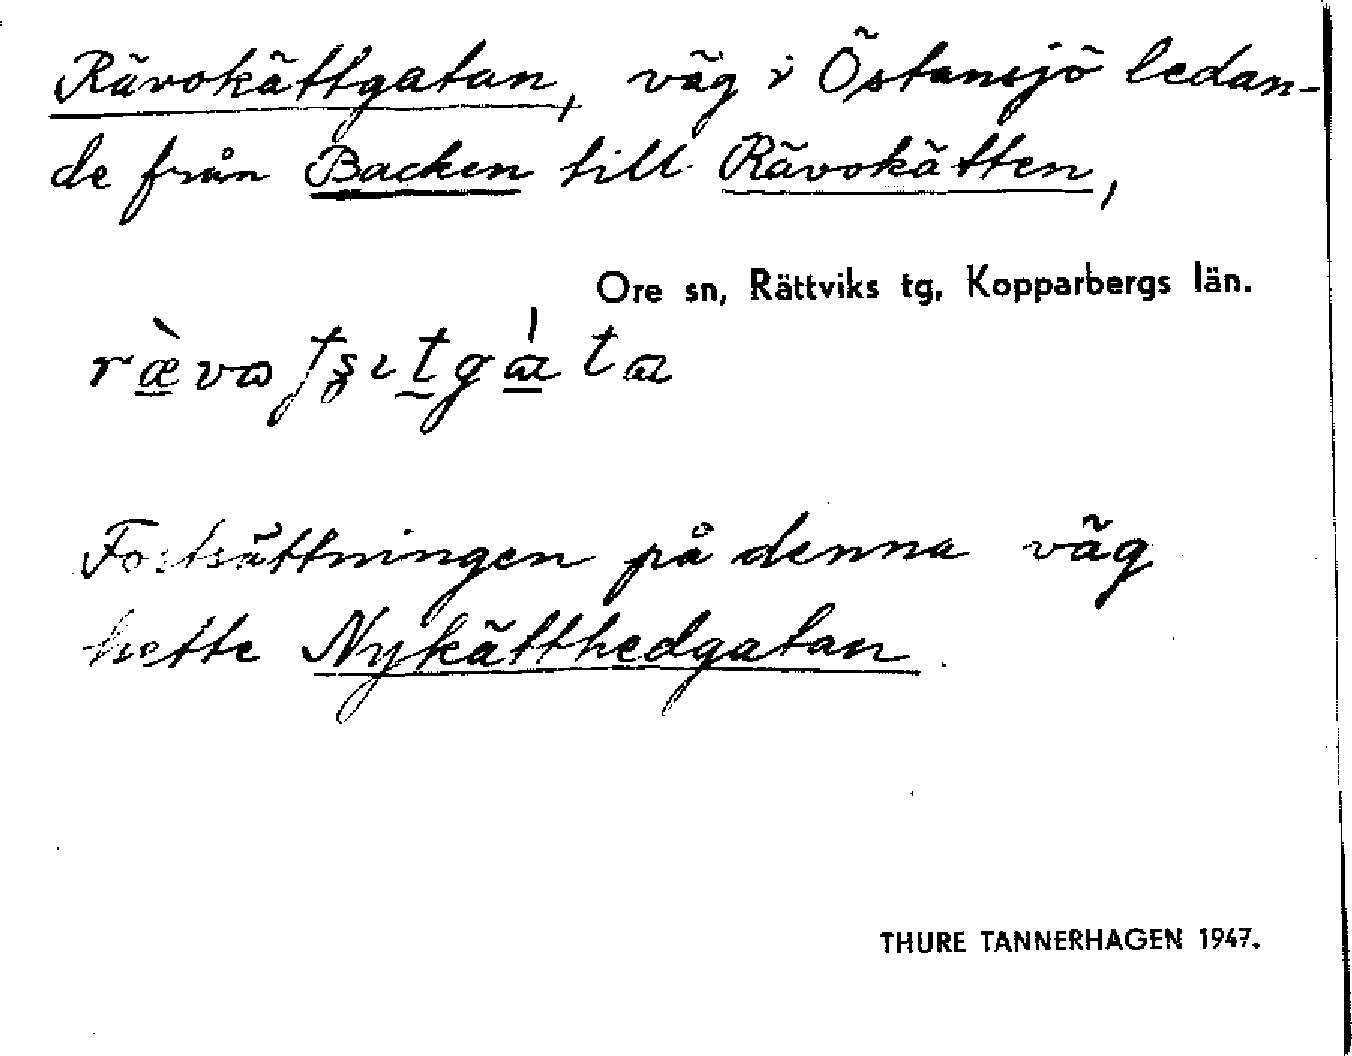 Rävokättgatan, väg i Östansjö ledan-
de från Backen till Rävokätten,
Ore sn, Rättviks tg, Kopparbergs län.
Fortsättningen på denna väg
hette Nykätthedgatan.
THURE TANNERHAGEN 1947.